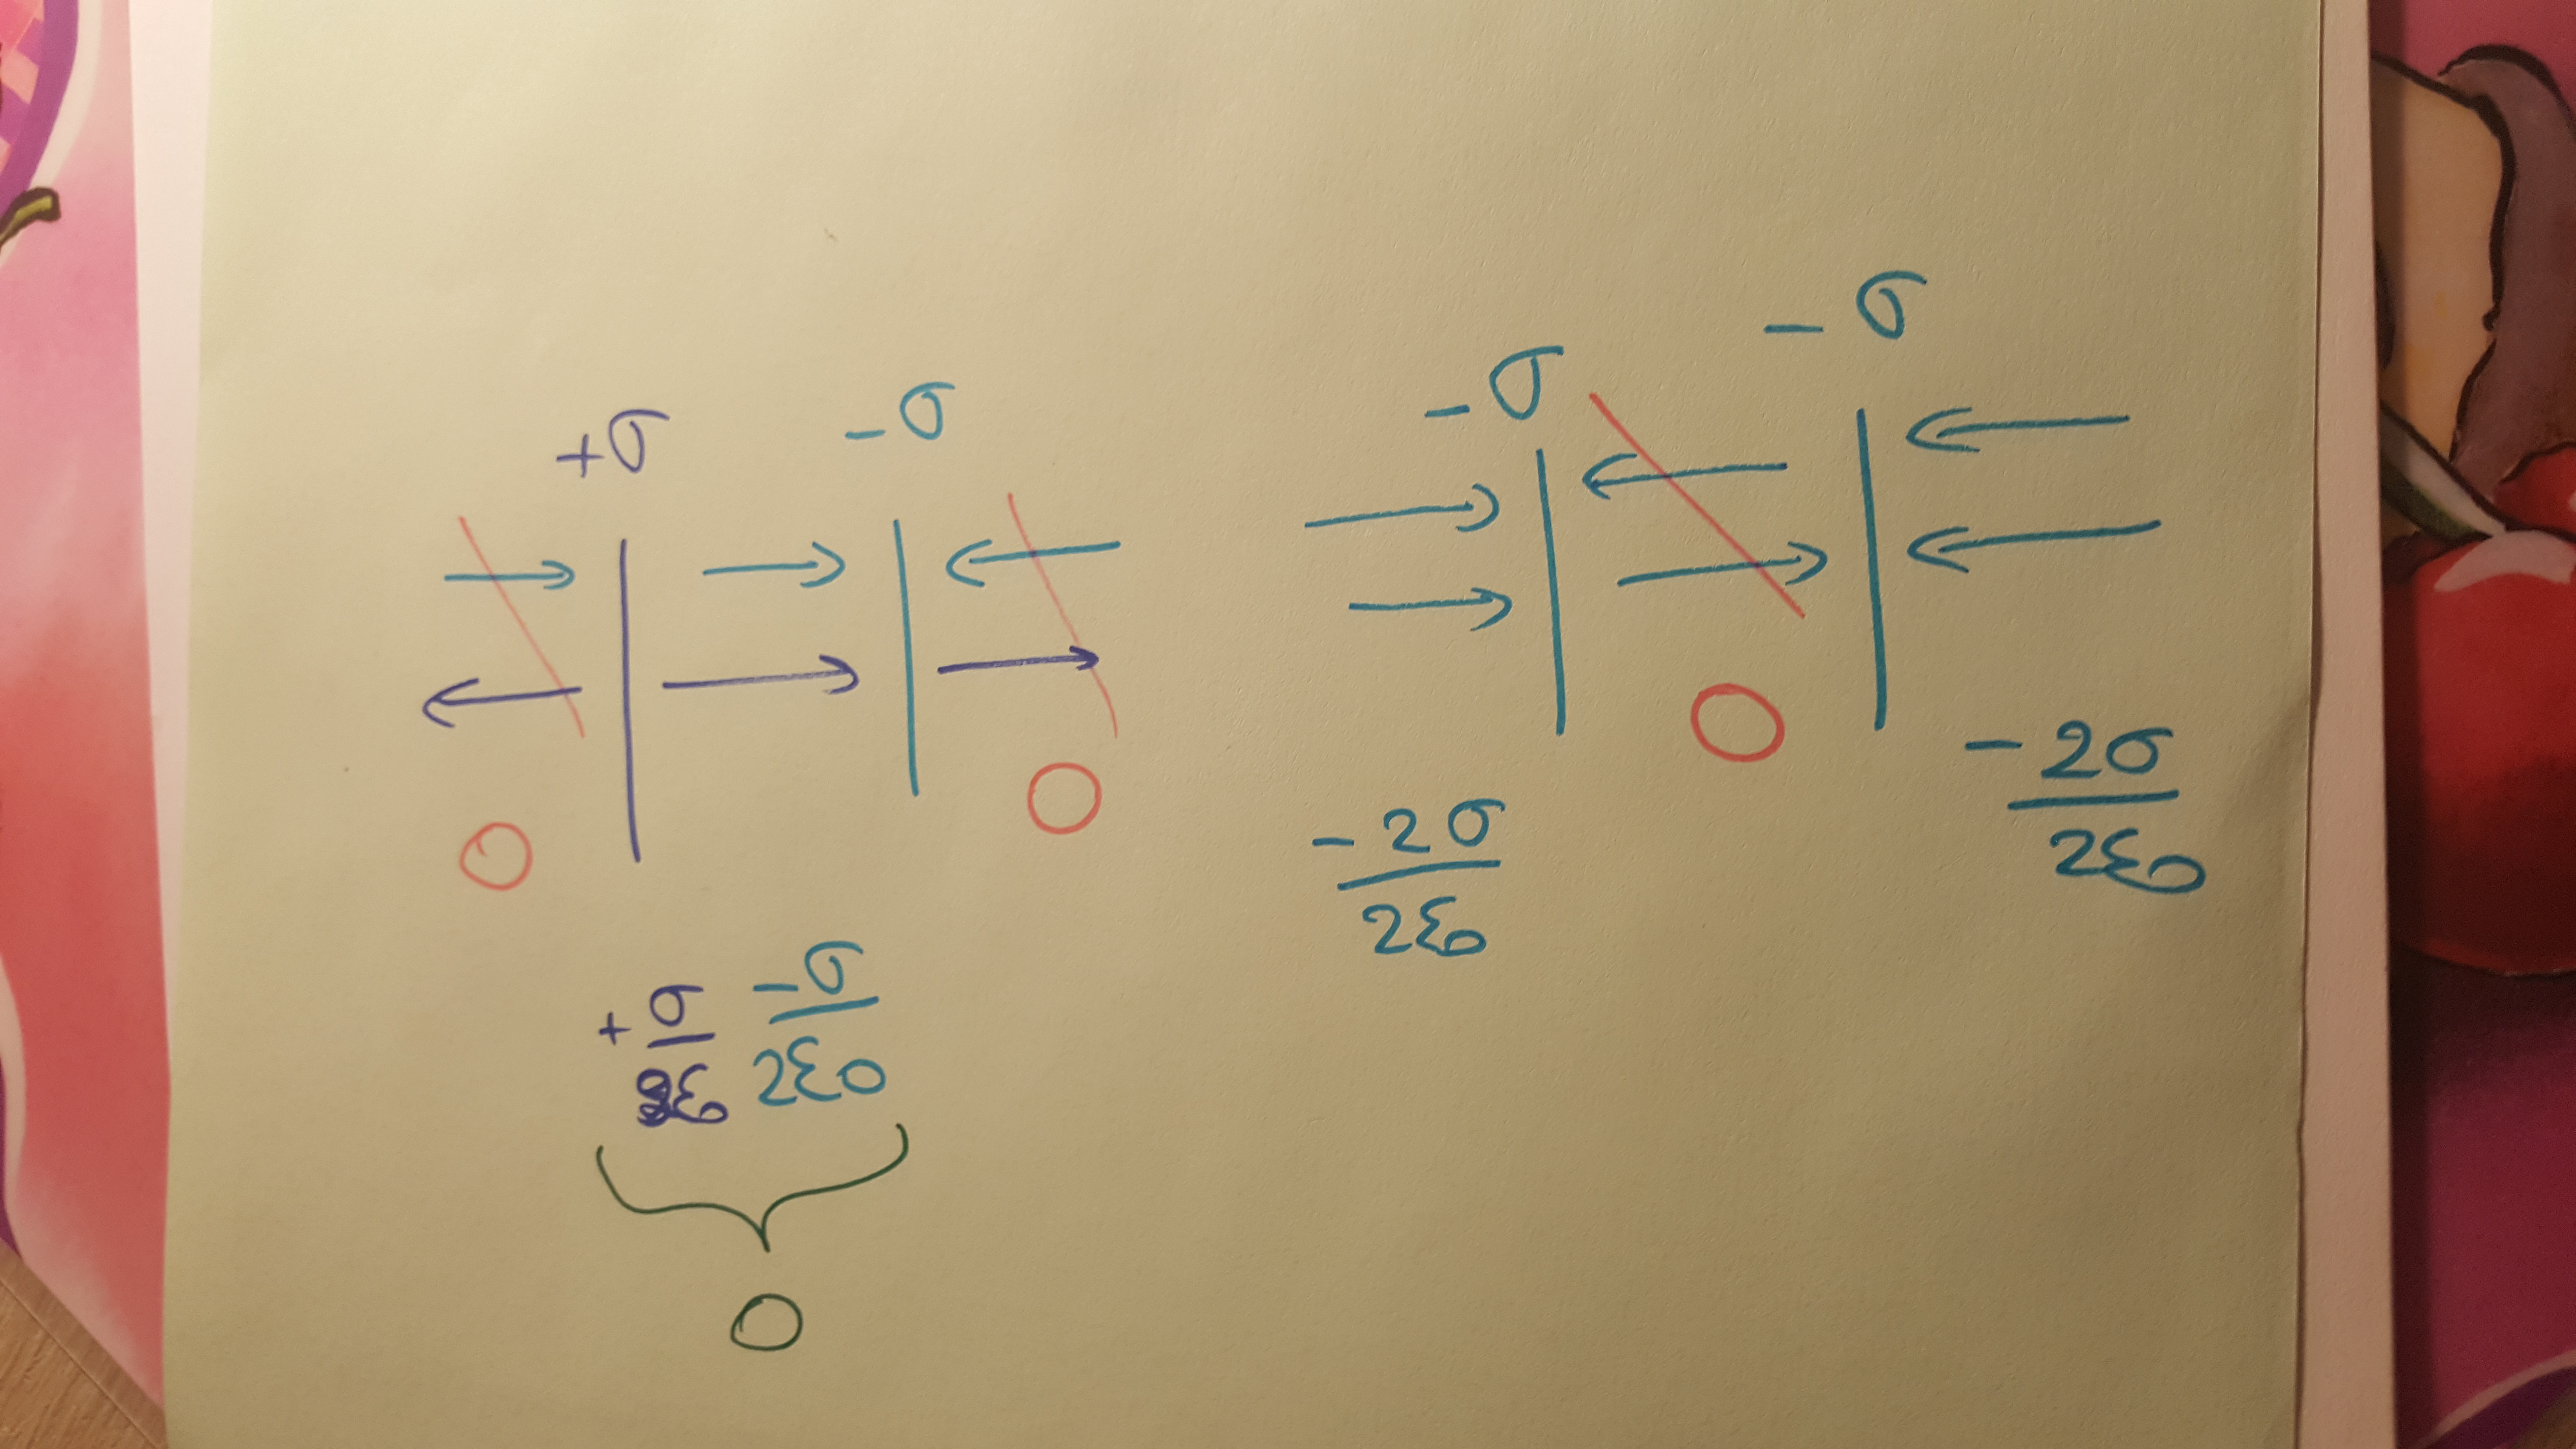 +σ -σ
0 0
+ σ/2ε₀ -σ/2ε0
0
-σ -σ
0
-2σ/2ε₀ -2σ/2ε₀